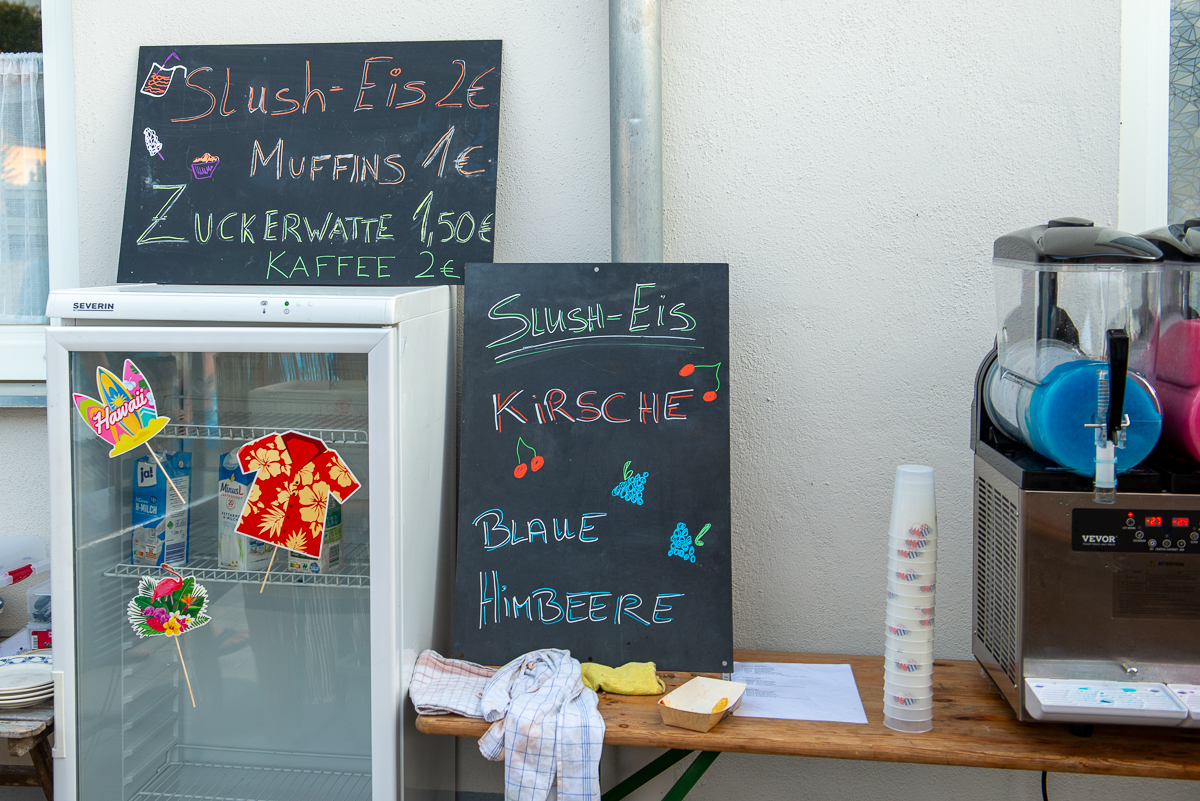 Slush-Eis 2€
MUFFINS 1€
ZUCKERWATTE 1,50€
KAFFEE 2€
SEVERIN
Hawaii
ja!
H-MILCH
MinusL
SLUSH-EIS
KiRSCHE
BLAUE
HimBEERE
VEVOR